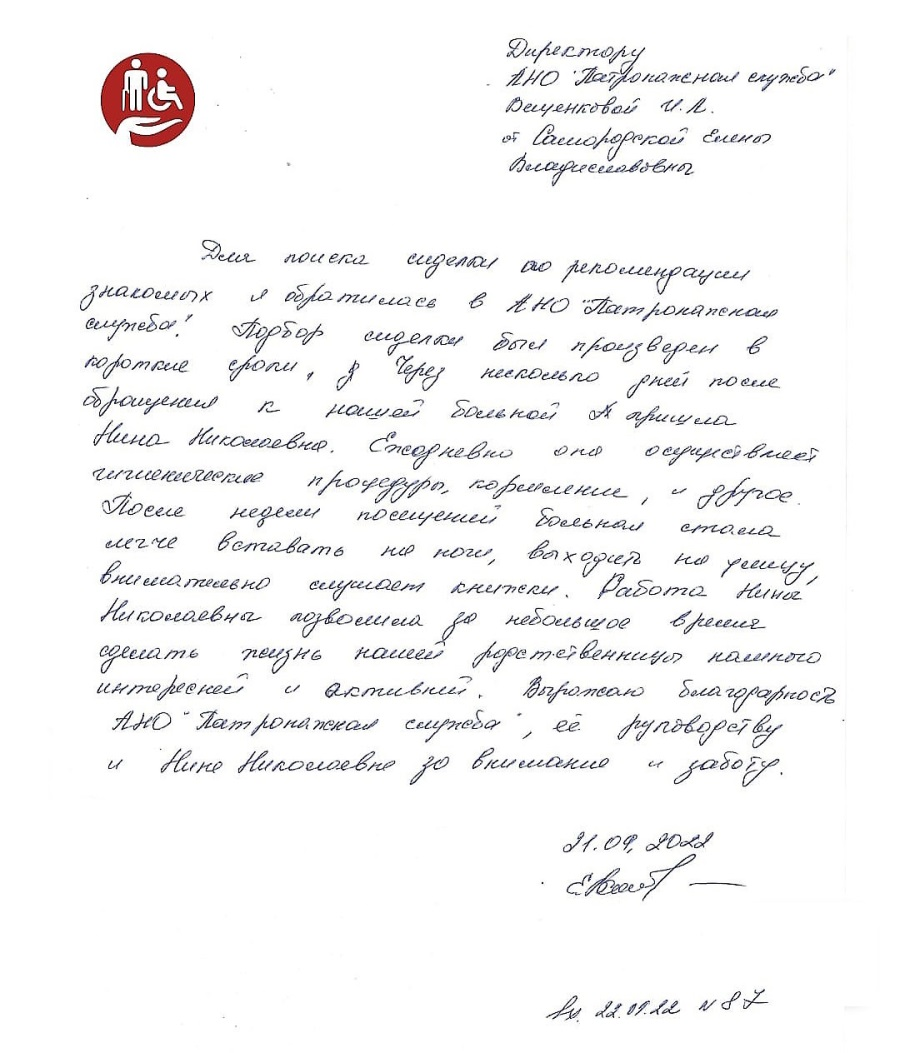 Директору
АНО "Патронажная служба"
Вещенковой И.А.
от Самородской Елены
Владиславовны
Для поиска сиделки по рекомендации
знакомых я обратилась в АНО "Патронажная
служба". Подбор сиделки был произведен в
короткие сроки, Через несколько дней после
обращения к нашей больной пришла
Нина Николаевна. Ежедневно она осуществляет
гигиенические процедуры, кормление, и другое.
После недели посещений больная стала
легче вставать на ноги, выходить на улицу,
внимательно слушает книжки. Работа Нины
Николаевны позволила за небольшое время
сделать жизнь нашей родственницы намного
интересней и активней. Выражаю благодарность
АНО "Патронажная служба", её руководству
и Нине Николаевне за внимание и заботу.
21.09.2022
Вх. 22.09.22 N 87